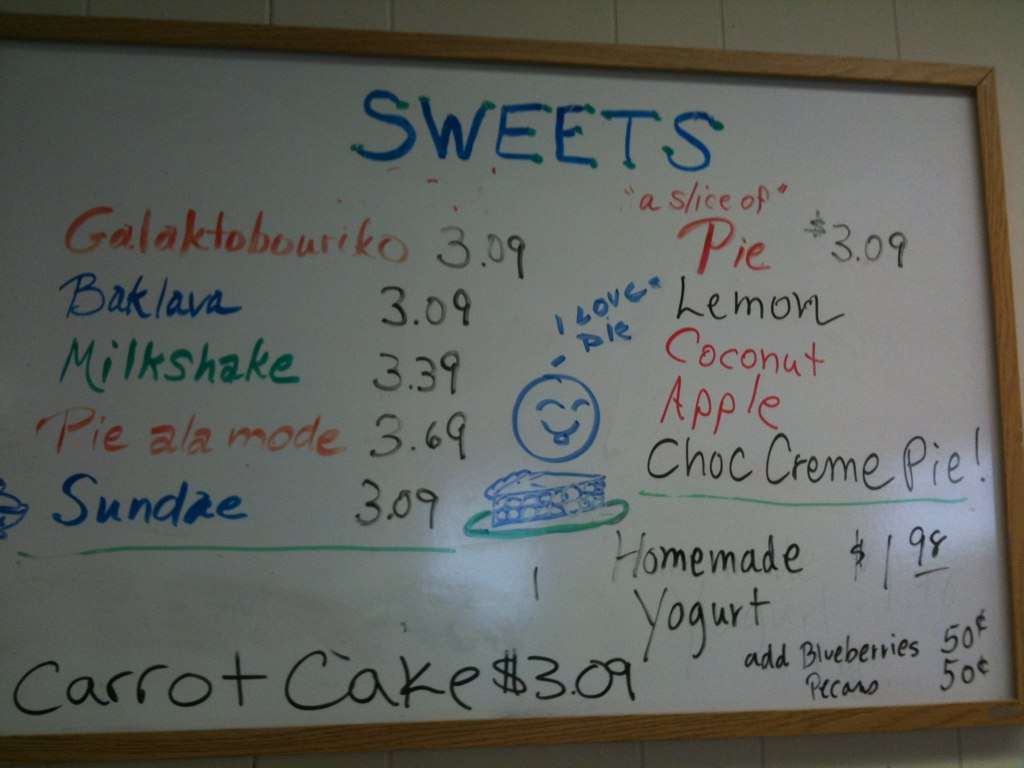 SWEETS
Galaktobouriko 3.09
Baklava 3.09
Milkshake 3.39
Pie ala mode 3.69
Sundae 3.09
"a slice of"
Pie $3.09
Lemon
Coconut
Apple
Choc Creme Pie!
I LOVE
PIE
Homemade $1.98
Yogurt
add Blueberries 50¢
Pecans 50¢
Carrot Cake $3.09